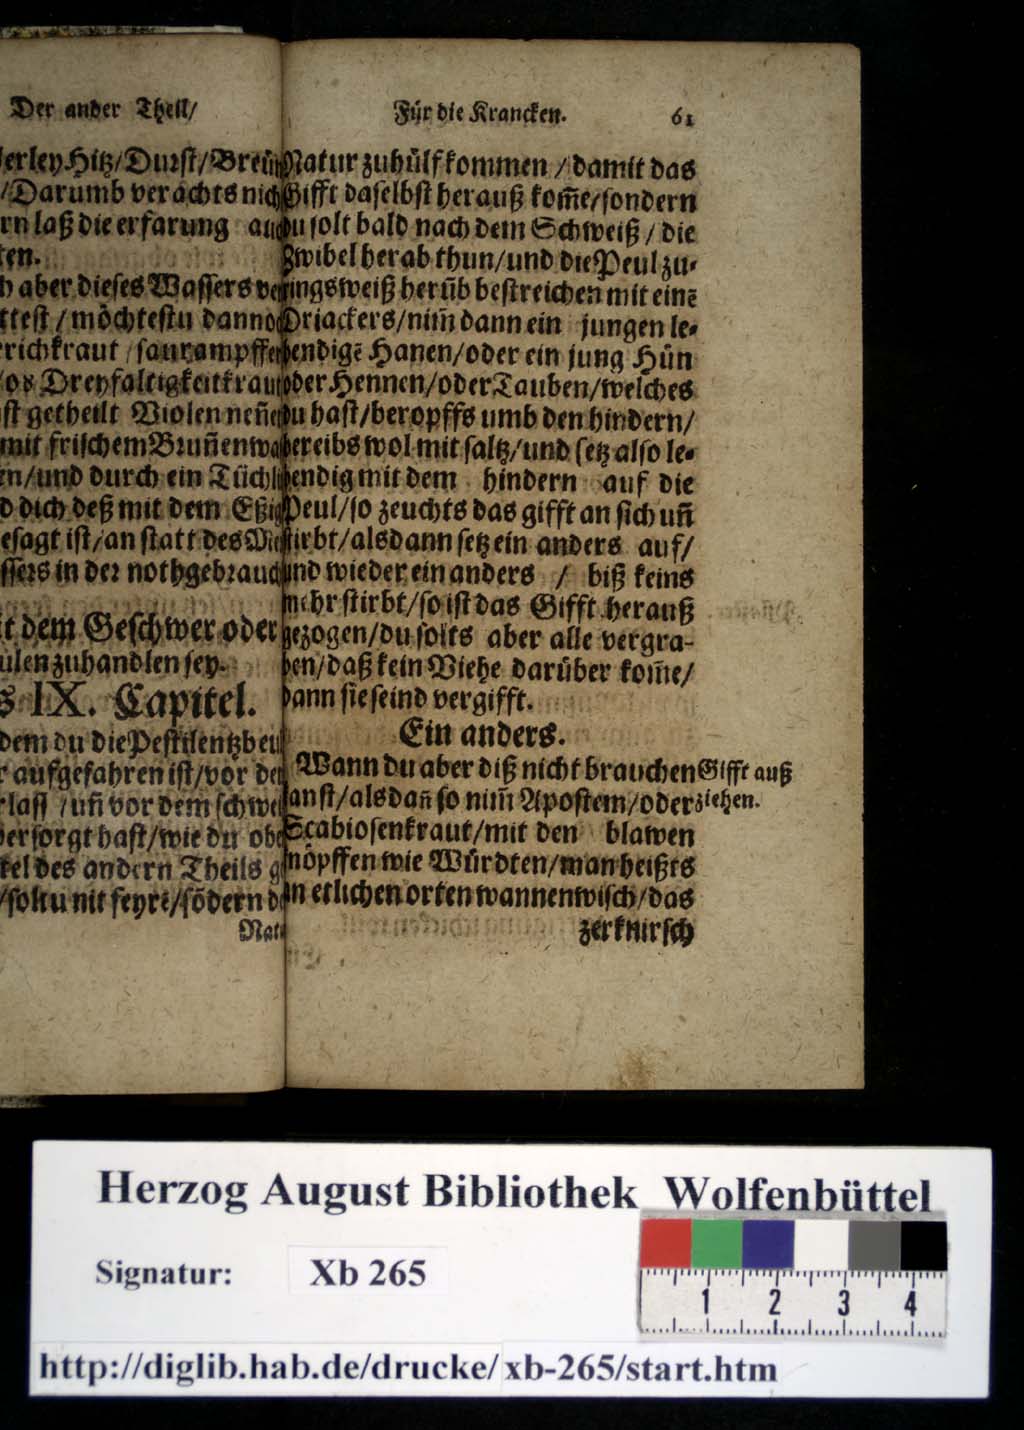 Der ander Theil/
erley Hitz/Durst/Breün
/Darumb verachts nich
rn laß die erfarung au
ten.
h aber dieses Wassers ve
ttest/möchtestu danno
richkraut/saurampffe
/oď Dreyfaltigkeitkrau
st getheilt Violen neñe
mit frischem Bruñenwa
en/und durch ein Tüchli
d dich deß mit dem Eßig
esagt ist/an statt des Wie
ssers in der noth gebrauc
it dem Geschwer oder
ulen zuhandlen sey.
s IX. Capitel.
dem du die Pestilentzbeu
r aufgefahren ist/vor de
rlass/uñ vor dem schwei
versorgt hast/wie du obe
tel des andern Theils g
/soltu nit feyrē/sōdern d
Natu
Für die Krancken. 61
Natur zuhülf kommen/damit das
Gifft daselbst herauß kom̄e/sondern
du solt bald nach dem Schweiß/die
Zwibel herab thun/und die Peul zu-
ringsweiß herüb bestreichen mit einē
Driackers/nim̄ dann ein jungen le-
bendigē Hanen/oder ein jung Hůn
oder Hennen/oder Tauben/welches
du hast/beropffs umb den hindern/
bereibs wol mit saltz/und setz also le-
bendig mit dem hindern auf die
Peul/so zeuchts das gifft an sich uñ
stirbt/alsdann setz ein anders auf/
und wieder ein anders/biß keins
mehr stirbt/so ist das Gifft herauß
gezogen/du solts aber alle vergra-
ben/daß kein Viehe darüber kom̄e/
dann sie seind vergifft.
Ein anders.
Wann du aber diß nicht brauchen Gifft auß
kanst/alsdañ so nim̄ Apostem/oder ziehen.
Scabiosenkraut/mit den blawen
knöpffen wie Würdten/man heißts
in etlichen orten wannenwisch/das
zerknirsch
Herzog August Bibliothek Wolfenbüttel
Signatur: Xb 265
1 2 3 4
http://diglib.hab.de/drucke/xb-265/start.htm